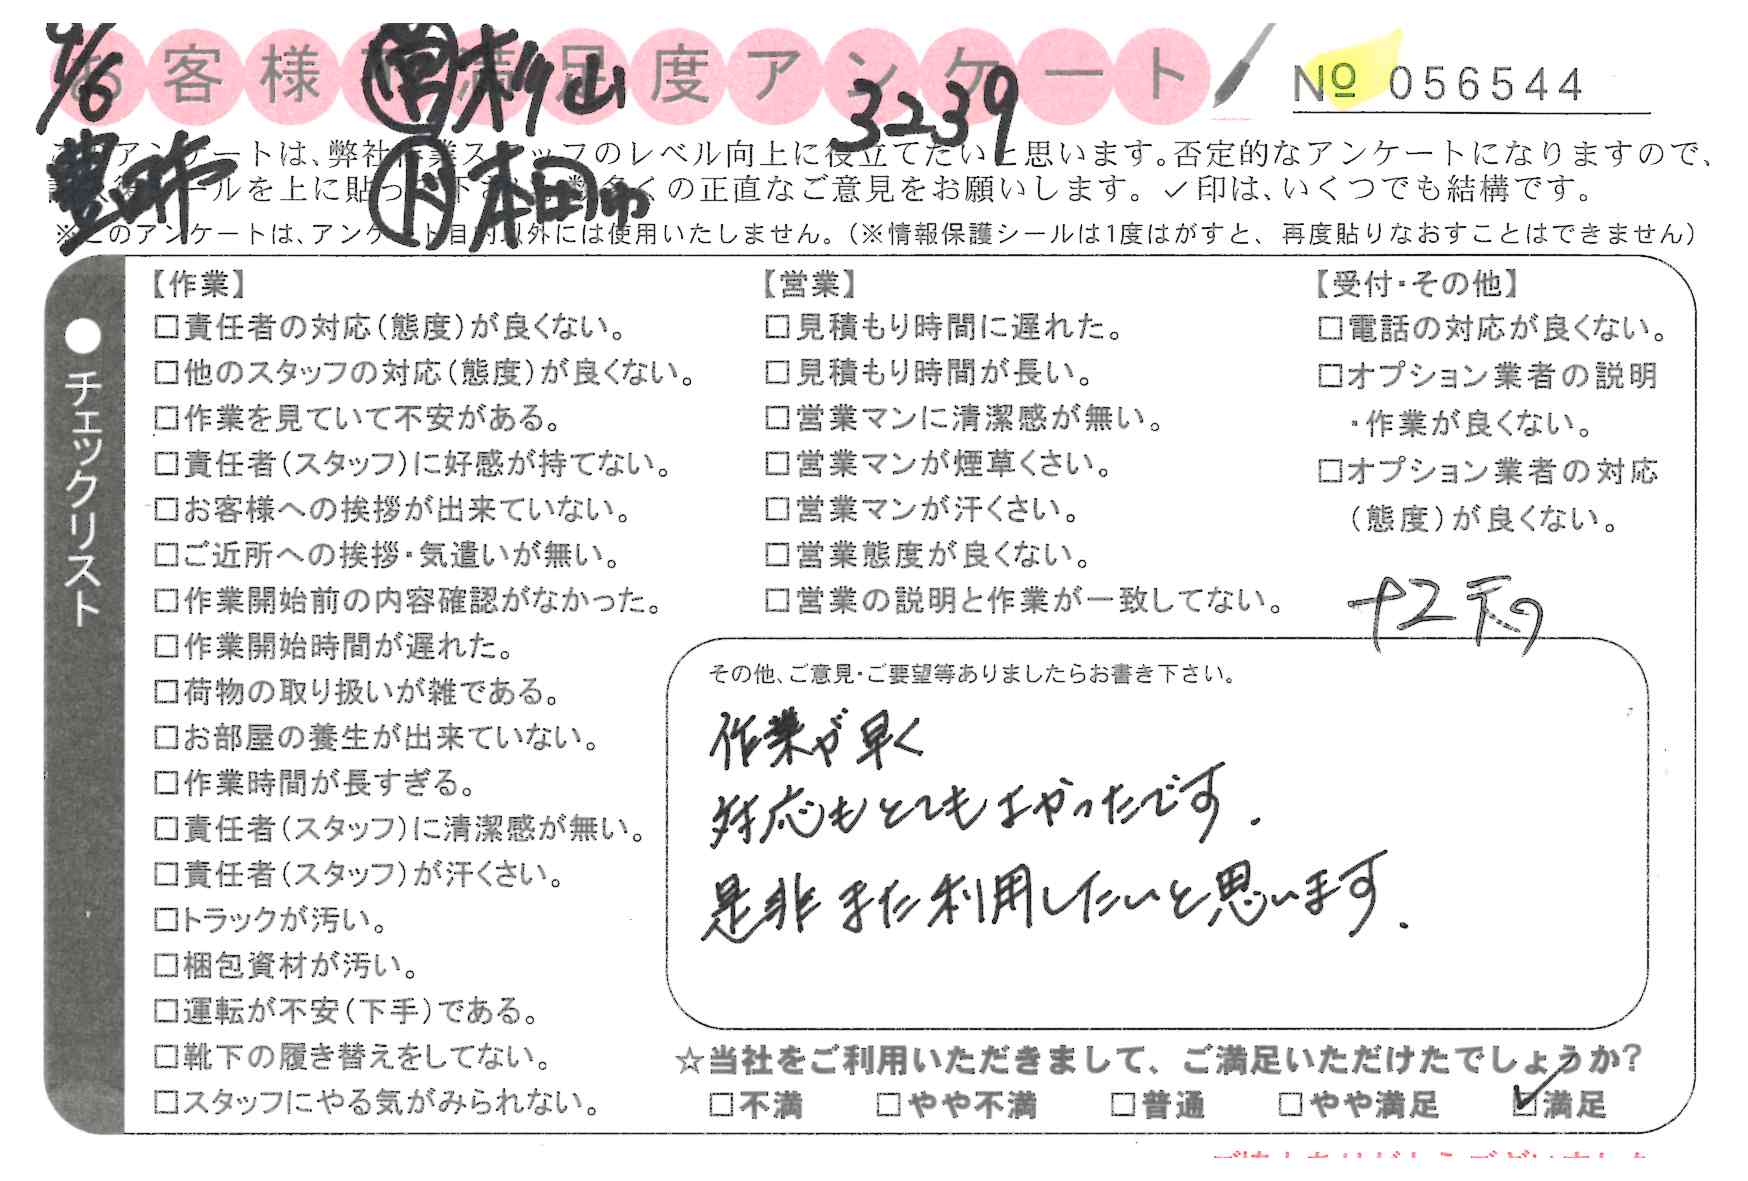 4/6
お客様ご満足度アンケート
営 杉山
3239
No 056544
豊昨
ド 本田
このアンケートは、弊社作業スタッフのレベル向上に役立てたいと思います。否定的なアンケートになりますので、
シールを上に貼って下さい。数多くの正直なご意見をお願いします。✓印は、いくつでも結構です。
※このアンケートは、アンケート目的以外には使用いたしません。(※情報保護シールは1度はがすと、再度貼りなおすことはできません)
●チェックリスト
【作業】
□責任者の対応(態度)が良くない。
□他のスタッフの対応(態度)が良くない。
□作業を見ていて不安がある。
□責任者(スタッフ)に好感が持てない。
□お客様への挨拶が出来ていない。
□ご近所への挨拶・気遣いが無い。
□作業開始前の内容確認がなかった。
□作業開始時間が遅れた。
□荷物の取り扱いが雑である。
□お部屋の養生が出来ていない。
□作業時間が長すぎる。
□責任者(スタッフ)に清潔感が無い。
□責任者(スタッフ)が汗くさい。
□トラックが汚い。
□梱包資材が汚い。
□運転が不安(下手)である。
□靴下の履き替えをしてない。
□スタッフにやる気がみられない。
【営業】
□見積もり時間に遅れた。
□見積もり時間が長い。
□営業マンに清潔感が無い。
□営業マンが煙草くさい。
□営業マンが汗くさい。
□営業態度が良くない。
□営業の説明と作業が一致してない。
【受付・その他】
□電話の対応が良くない。
□オプション業者の説明
・作業が良くない。
□オプション業者の対応
(態度)が良くない。
その他、ご意見・ご要望等ありましたらお書き下さい。
作業が早く
対応もとてもよかったです.
是非また利用したいと思います.
☆当社をご利用いただきまして、ご満足いただけたでしょうか?
□不満 □やや不満 □普通 □やや満足 ☑満足